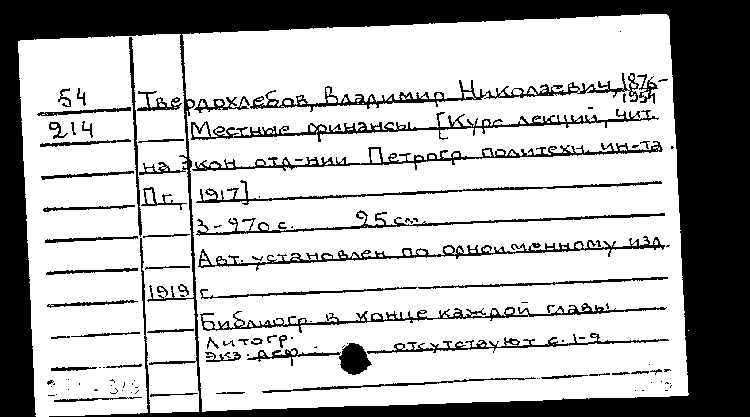 54 Твердохлебов, Владимир Николаевич, 1876-
1954
214 Местные финансы. [Курс лекций, чит.
на Экон. отд-нии Петрогр. политехн. ин-та.
Пг., 1917].
3-270 с. 25 см.
Авт. установлен по одноименному изд.
1919 г.
Библиогр. в конце каждой главы
Литогр.
Экз. деф.: отсутствуют с. 1-2.